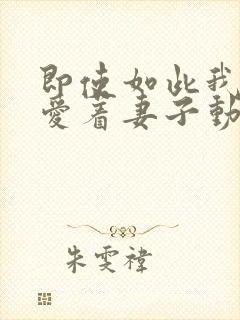 即使如此我
爱着妻子動
朱雯禕